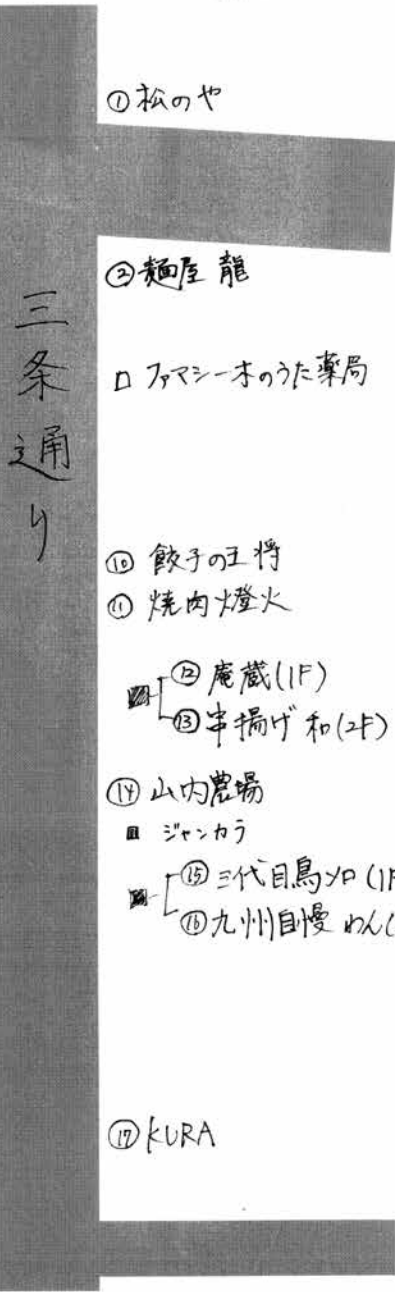 ①松のや
②麺屋 龍
三条通り
ファマシー木のうた薬局
⑩ 餃子の王将
⑪ 焼肉燈火
⑫ 庵蔵(1F)
⑬ 串揚げ 和(2F)
⑭ 山内農場
ジャンカラ
⑮ 三代目鳥メロ (1F
⑯ 九州自慢 わん(
⑰ KURA